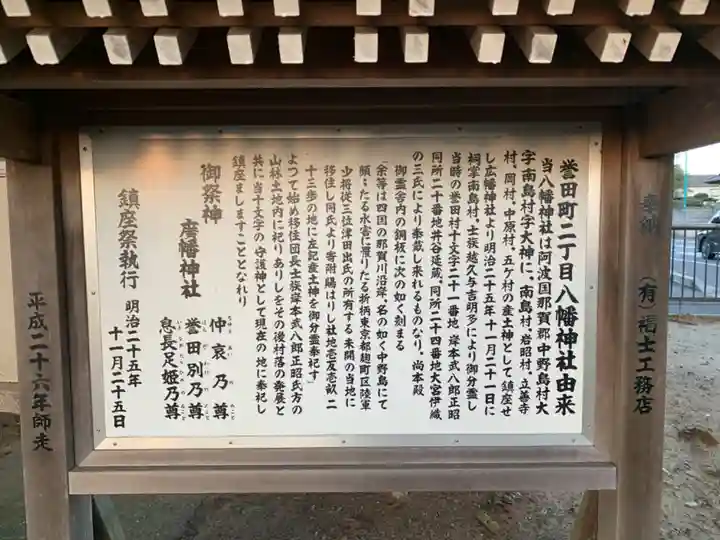 誉田町二丁目八幡神社由来
当八幡神社は阿波国那賀郡中野島村大
字南島村字大神に、南島村、岩昭村、立善寺
村、岡村、中原村、五ケ村の産土神として鎮座せ
し広幡神社より明治二十五年十一月二十一日に
祠掌南島村、士族越久与吉明多により御分霊し
当時の誉田村十文字二十一番地 岸本武八郎正昭
同所二十番地井谷延蔵、同所二十四番地大宮伊織
の三氏により奉蔵し来れるものなり。尚本殿
御霊舎内の銅板に次の如く刻まる
「余等は四国の那賀川沿岸、名の如く中野島にて
頻々たる水害に罹りたる折柄東京都麹町区陸軍
少将従三位津田出氏の所有する未開の当地に
移住し同氏より寄附賜はりし社地壱反壱畝二
十三歩の地に左記産土神を御分霊奉祀す」
よつて始め移住団長士族岸本武八郎正昭氏方の
山林土地内に祀りありしをその後村落の発展と
共に当十文字の守護神として現在の地に奉祀し
鎮座ましますこととなれり
御祭神
廣幡神社
仲哀乃尊
誉田別乃尊
息長足姫乃尊
鎮座祭執行 明治二十五年
十一月二十五日
奉納 (有)福士工務店
平成二十六年師走